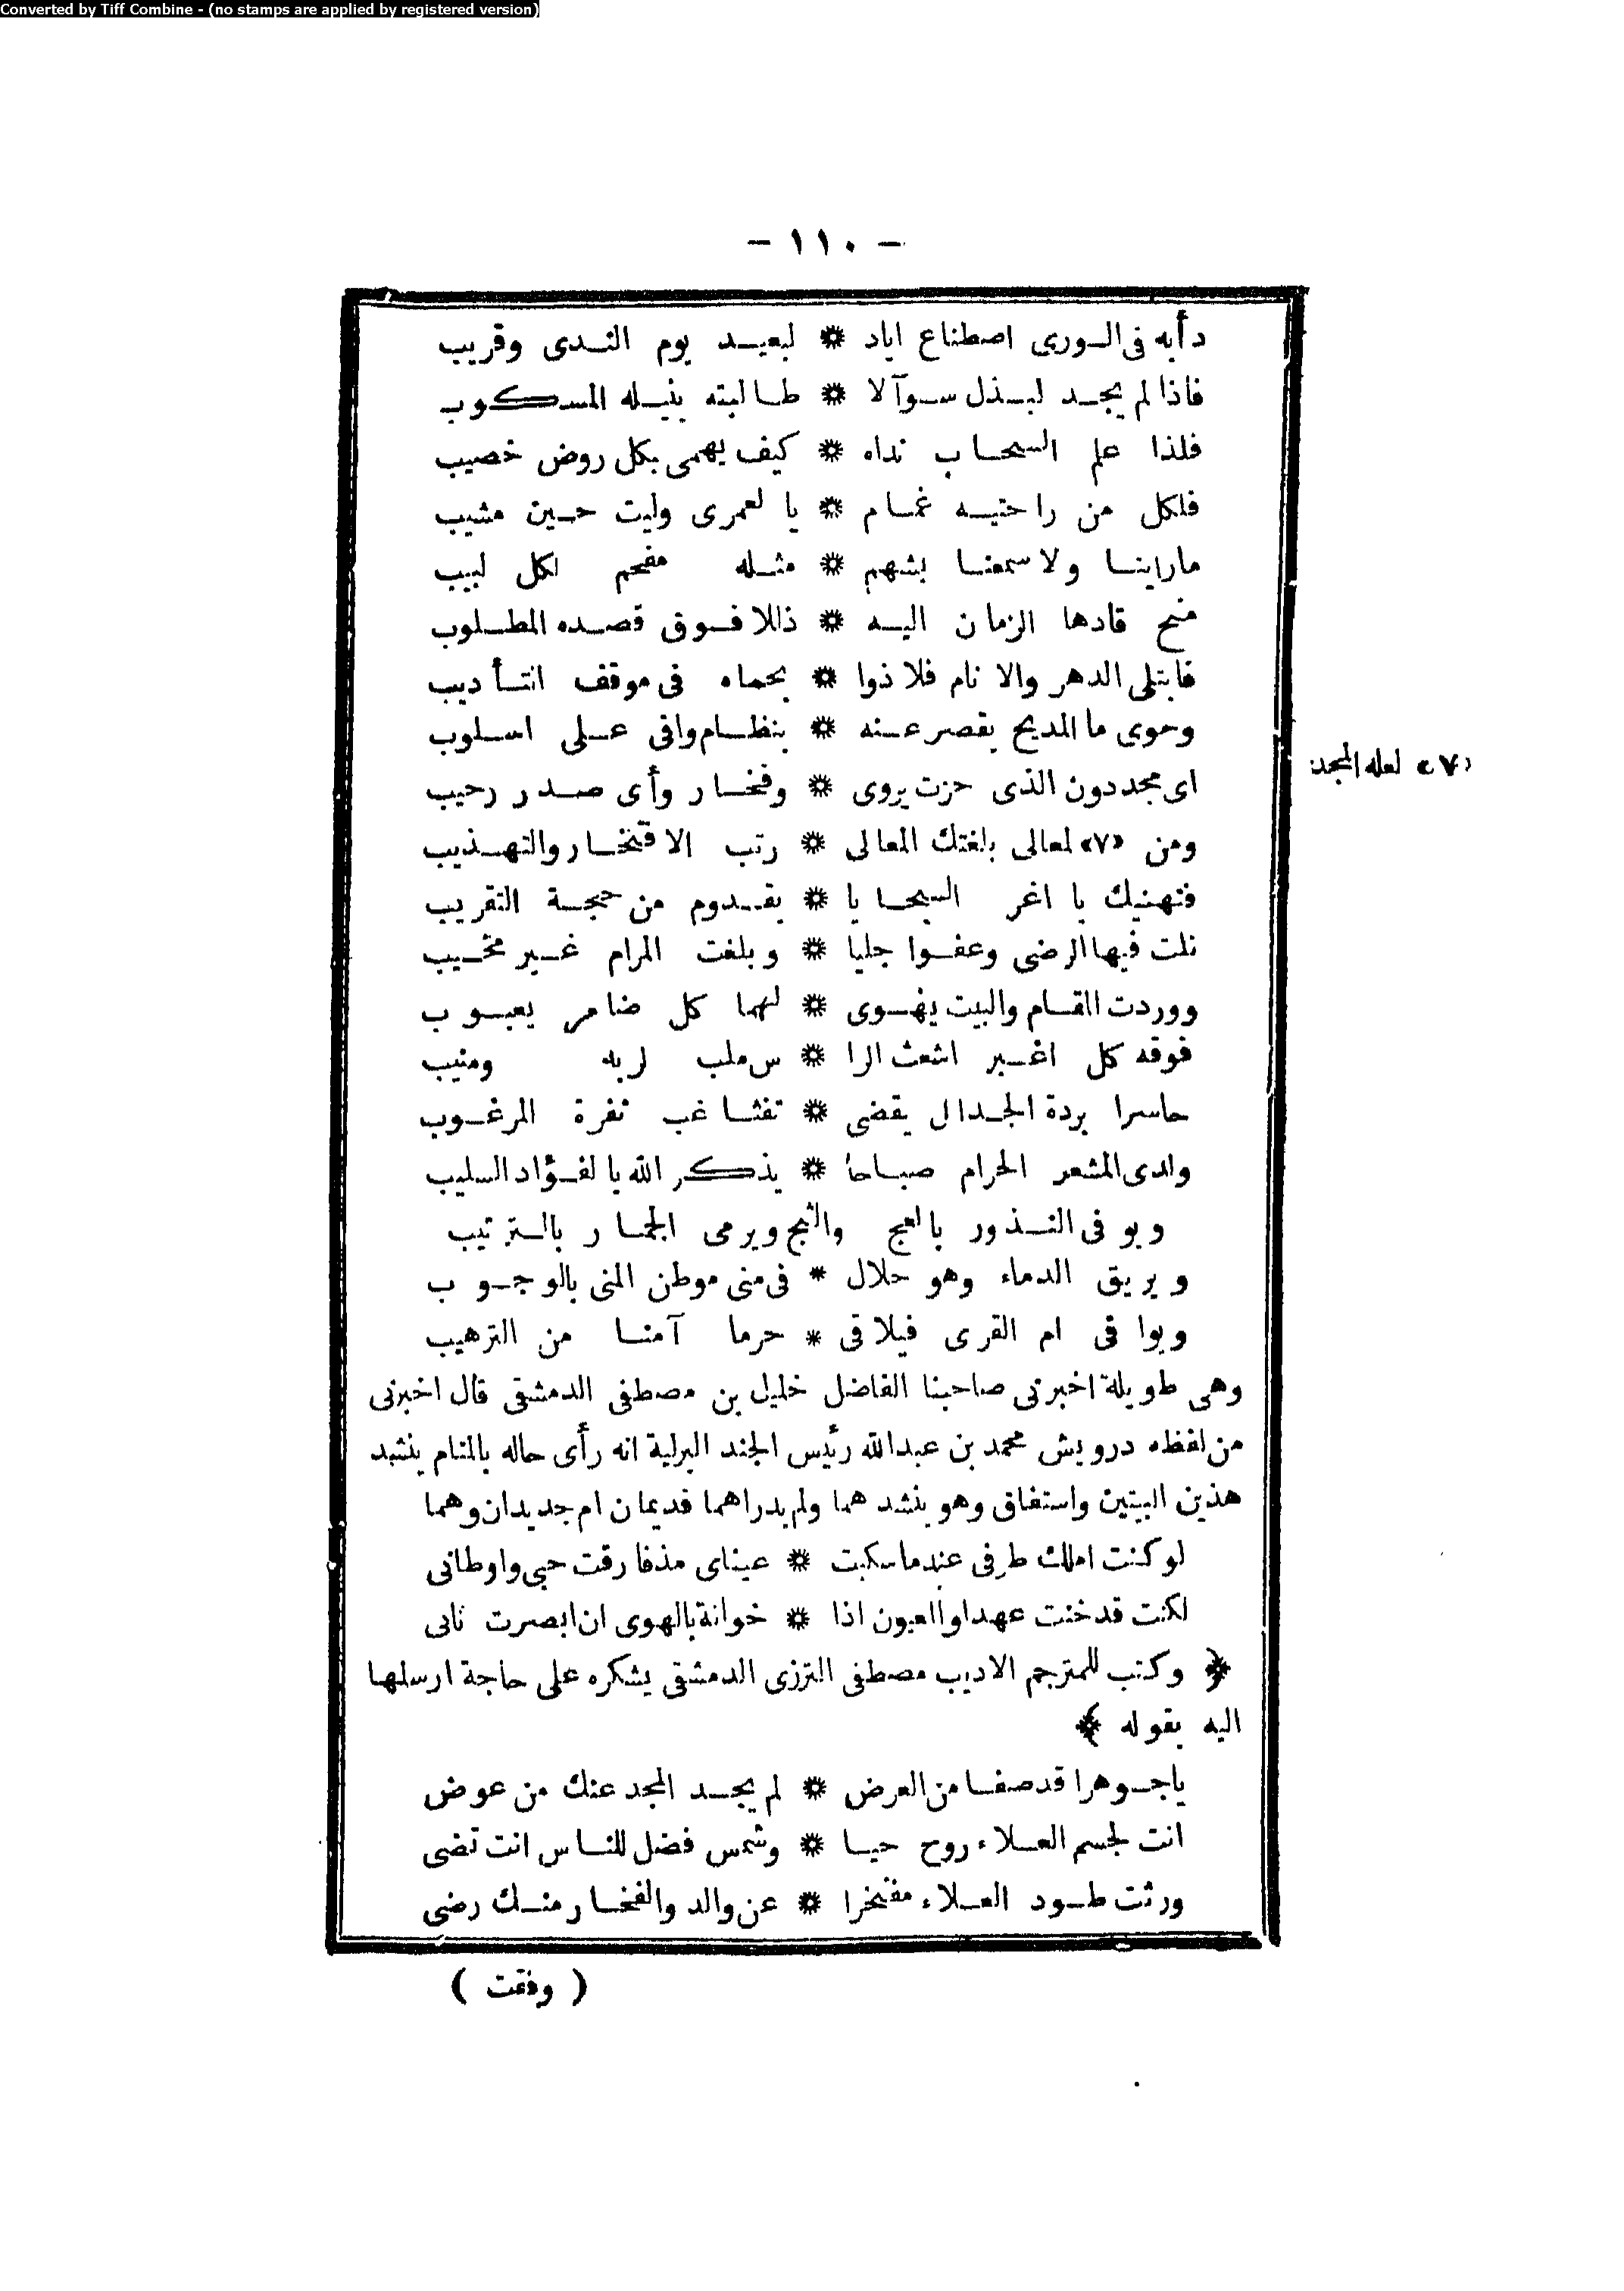 Converted by Tiff Combine - (no stamps are applied by registered version)
- ١١٠ -
دأبه فى الورى اصطناع اياد * لبعيد يوم الندى وقريب
فاذا لم يجد لبذل سوآلا * طالبته بنيله المسكوب
فلذا علم السحاب نداه * كيف يهمى بكل روض خصيب
فلكل من راحتيه غمام * يا لعمرى وليت حين مشيب
ماراينا ولا سمعنا بشهم * مثله مفحم لكل لبيب
منح قادها الزمان اليه * ذللا فوق قصده المطلوب
فابتلى الدهر والانام فلاذوا * بحماه فى موقف التأديب
وحوى ما المديح يقصر عنه * بنظام وافى على اسلوب
اى مجد دون الذى حزت يروى * وفخار وأى صدر رحيب
ومن «٧» لمعالى بلغتك المعالى * رتب الافتخار والتهذيب
«٧» لعله المجد
فتهنيك يا اغر السجايا * بقدوم من حجة التقريب
نلت فيها الرضى وعفوا جليا * وبلغت المرام غير مخيب
ووردت المقام والبيت يهوى * لهما كل ضامر يعبوب
فوقه كل اغبر اشعث الرا * س ملب لربه ومنيب
حاسرا بردة الجدال يقضى * تفثا غب نفرة المرغوب
ولدى المشعر الحرام صباحا * يذكر الله بالفؤاد السليب
ويوفى النذور بالعج والثج ويرمى الجمار بالترتيب
ويريق الدماء وهو حلال * فى منى موطن المنى بالوجوب
ويوافى ام القرى فيلاقى * حرما آمنا من الترهيب
وهى طويلة اخبرنى صاحبنا الفاضل خليل بن مصطفى الدمشقى قال اخبرنى
من لفظه درويش محمد بن عبدالله رئيس الجند اليرلية انه رأى خاله بالمنام ينشد
هذين البيتين واستفاق وهو ينشدهما ولم يدر اهما قديمان ام جديدان وهما
لو كنت املك طرفى عندما سكبت * عيناى مذ فارقت حبى واوطانى
لكنت قد خنت عهدا والعيون اذا * خوانة بالهوى ان ابصرت ثانى
﴿ وكتب للمترجم الاديب مصطفى الترزى الدمشقى يشكره على حاجة ارسلها
اليه بقوله ﴾
ياجوهرا قد صفا من العرض * لم يجد المجد عنك من عوض
انت لجسم العلاء روح حيا * وشمس فضل للناس انت تضى
ورثت طود العلاء مفتخرا * عن والد والفخار منك رضى
( وفقت )